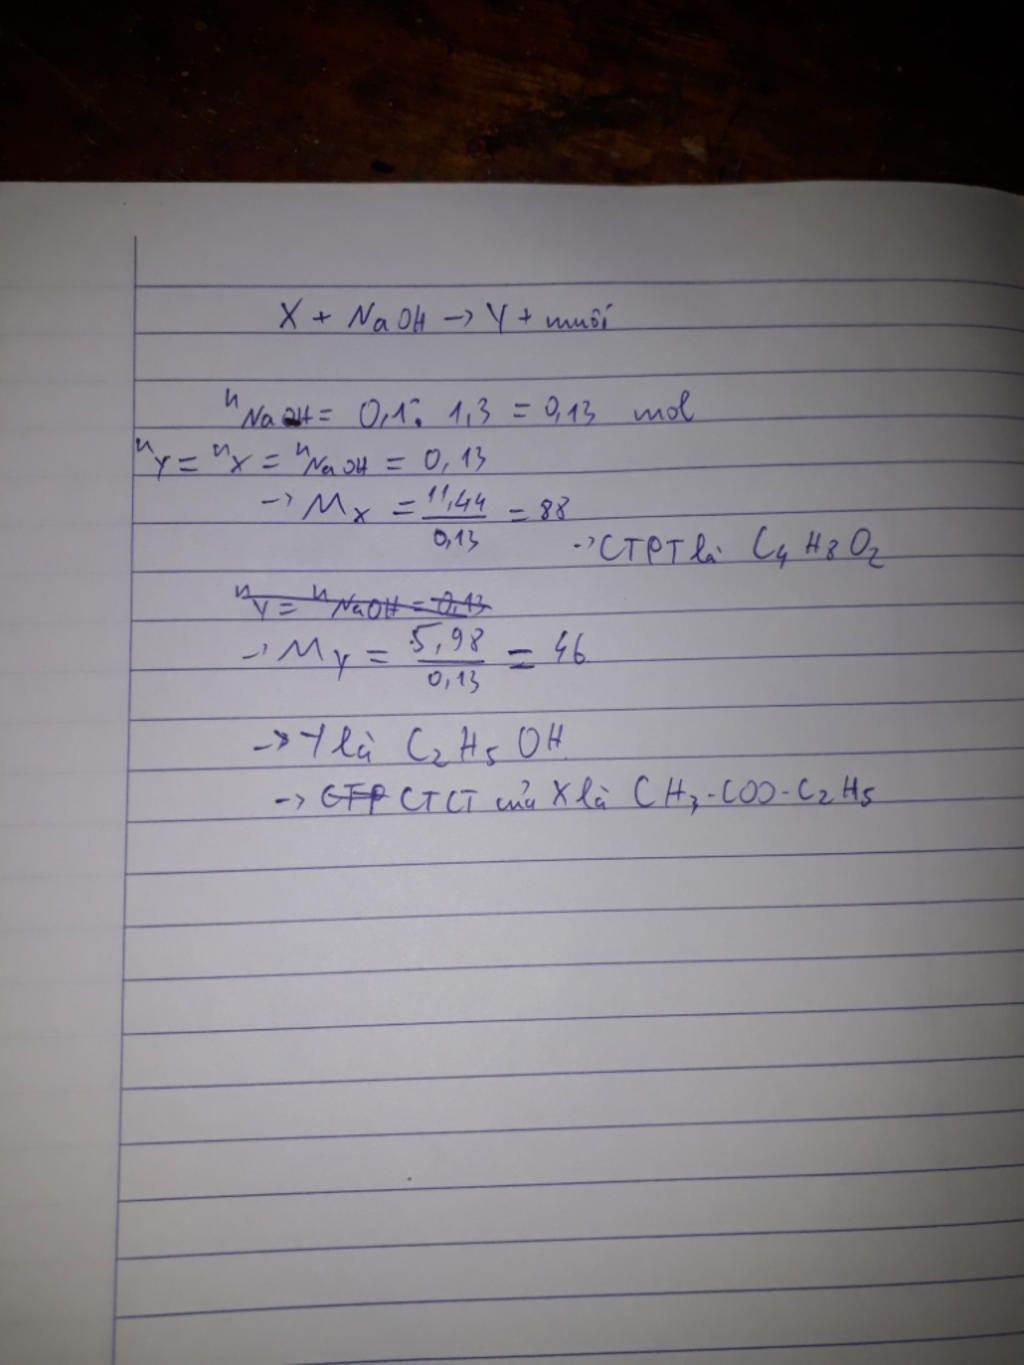 X + NaOH → Y + muối
nNaOH = 0,1 . 1,3 = 0,13 mol
nY = nX = nNaOH = 0,13
→ MX = 11,44 / 0,13 = 88
→ CTPT là C4H8O2
nY = nNaOH = 0,13
→ MY = 5,98 / 0,13 = 46
→ Y là C2H5OH
→ CTP CTCT của X là CH3-COO-C2H5